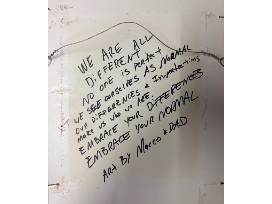 WE ARE ALL
DIFFERENT
NO ONE IS PERFECT
WE SEE OURSELVES AS NORMAL
OUR DIFFERENCES & Imperfections
MAKE US WHO WE ARE.
EMBRACE YOUR DIFFERENCES
EMBRACE YOUR NORMAL
ART BY MARCO & DAD